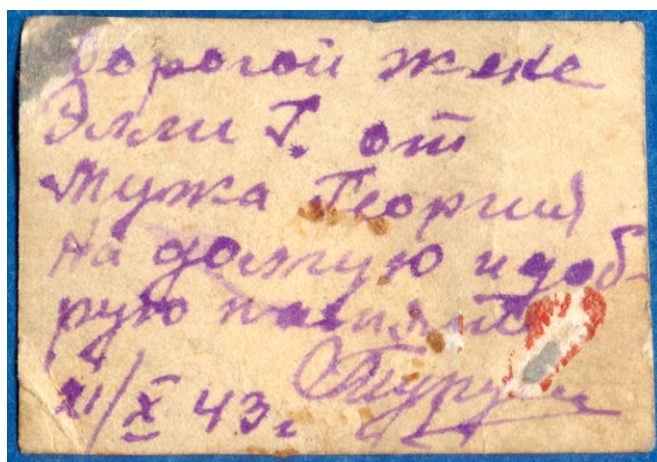 Дорогой жене
Элли Г. от
Мужа Георгия
На долгую и доб-
рую память
XI/X 43 г